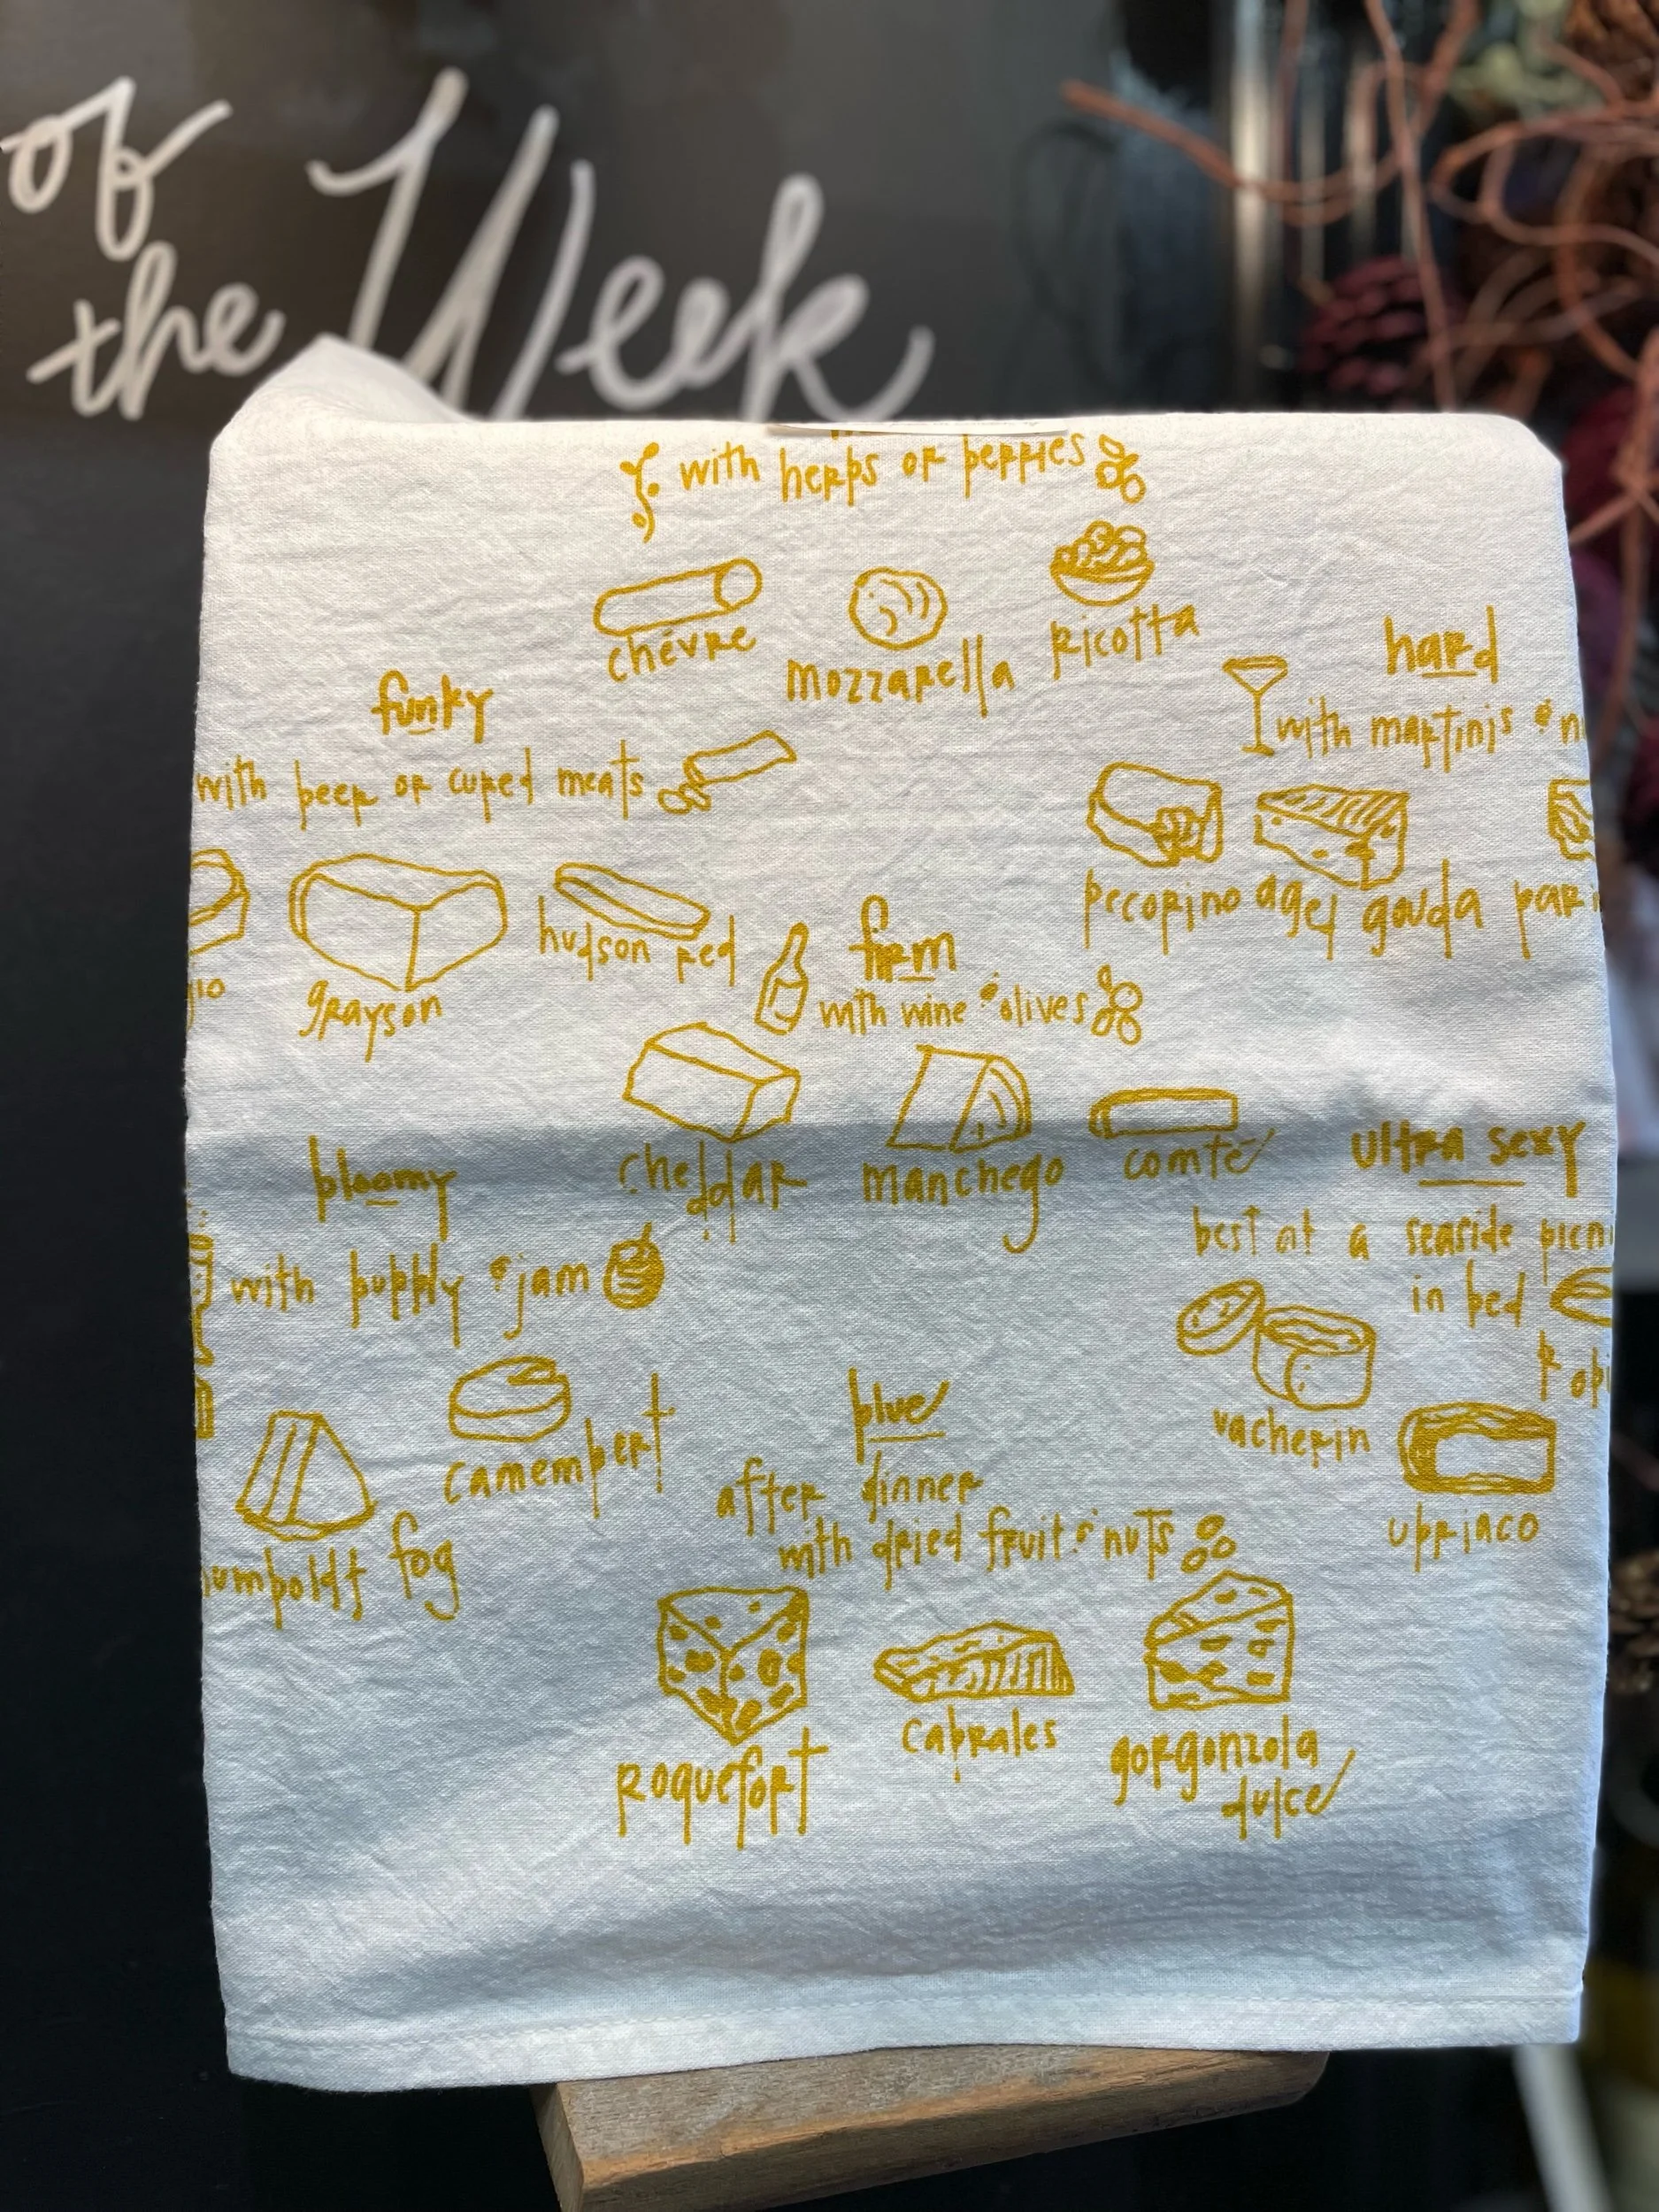 of
the Week
with herbs or berries
chévre
mozzarella
ricotta
funky
with beer or cured meats
grayson
hudson red
hard
with martinis &
pecorino
aged gouda
firm
with wine & olives
cheddar
manchego
comté
bloomy
with bubbly & jam
camembert
humboldt fog
ultra sexy
best at a seaside
in bed
vacherin
ubriaco
blue
after dinner
with dried fruit & nuts
roquefort
cabrales
gorgonzola
dulce